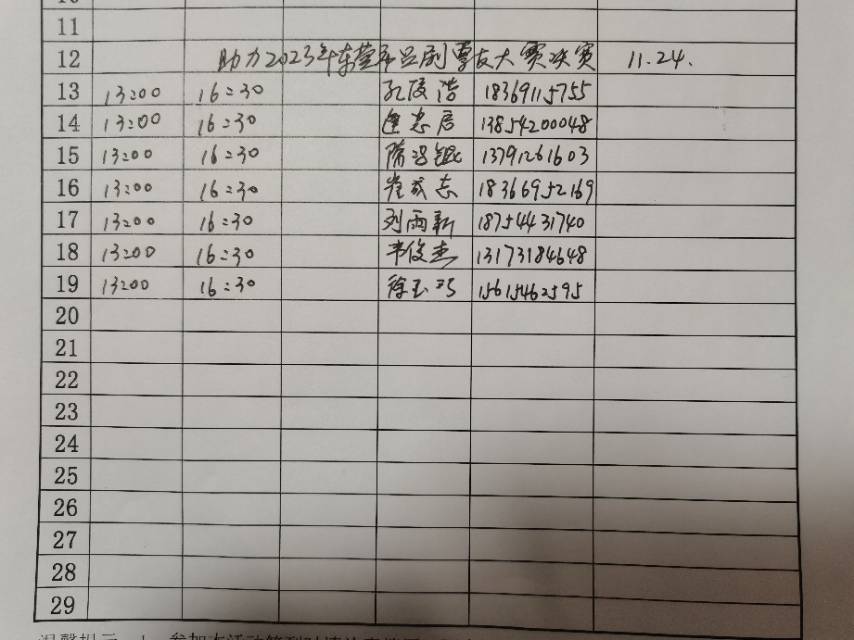 11
12 助力2023年东营市吕剧票友大赛决赛 11.24.
13 13:00 16:30 孔凌浩 18369115755
14 13:00 16:30 13854200048
15 13:00 16:30 隋 13791261603
16 13:00 16:30 崔成志 18366952169
17 13:00 16:30 刘雨新 18754431740
18 13:00 16:30 韦俊杰 13173184648
19 13:00 16:30 徐玉巧 15615462595
20
21
22
23
24
25
26
27
28
29